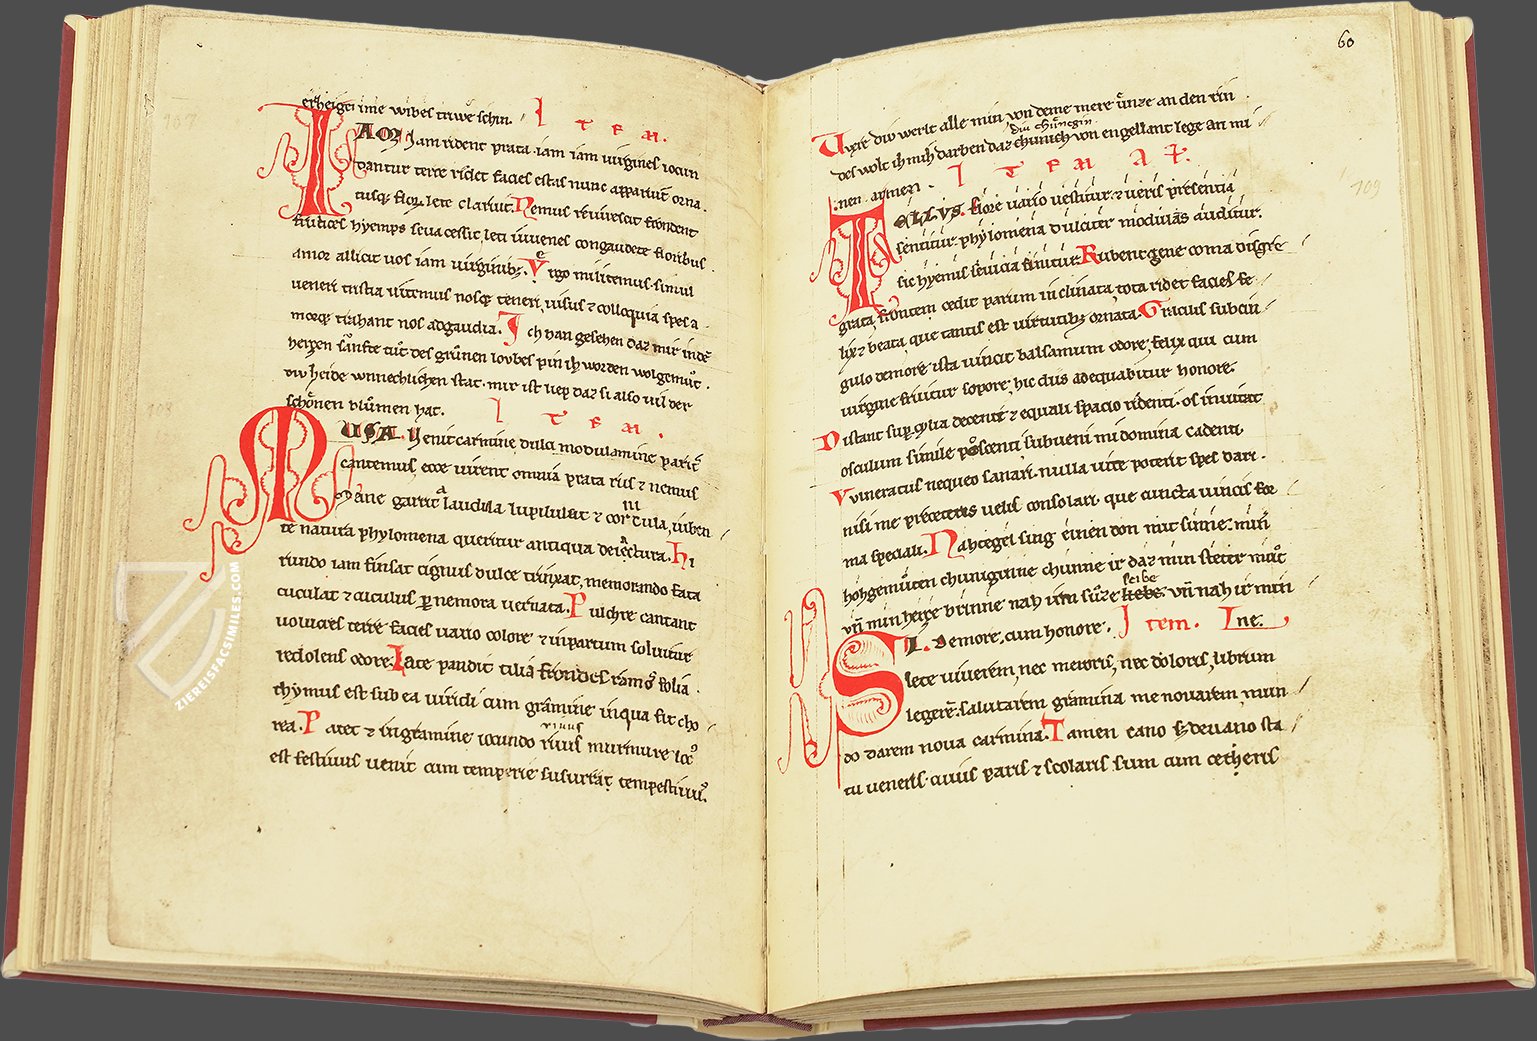 erzeigti ime wibes triwe schin.
I T E M.
IAM iam rident prata iam iam uirgines iocun
dantur terre ridet facies estas nunc apparuit orna
tusq; florum lete claruit. Nemus reuirescit frondent
frutices hyemps seua cessit leti iuuenes congaudete floribus
amor allicit uos iam uirginibus. Virgo militemus simul
ueneri tristia uitemus nosque teneri, uisus & colloquia spes a
morque trahant nos ad gaudia. Ich han gesehen daz mir in dem
herzen sanfte tuot des gruonen loubes pin ich worden wolgemuot.
div heide wnnechlichen stat mir ist liep daz si also uil der
schoenen bluomen hat. I T E M.
MUSA uenit carmine dulci modulamine pariter
cantemus, ecce uirent omnia prata rus & nemus
Mane garrit laudula lupilulat & cornicula, iuben
te natura phylomena queritur antiqua de iactura. Hi
rundo iam finsat cignus dulce trinsat, memorando fata
cuculat & cuculus per nemora uernata. Pulchre cantant
uolucres terre facies uario colore & in partum soluitur
redolens odore. Late pandit tilia frondes ramos folia
thymus est sub ea uiridi cum gramine in qua fit cho
rea. Patet & in gramine iocundo riuus murmure locus
riuus
est festiuus uenit cum temperie susurrat tempestiuus.
60
Uvere div werlt alle min von deme mere unze an den rin
des wolt ih mih darben daz chunich von engellant lege an mi
diu chunegin.
nen armen. I T E M A L.
TELLUS flore uario uestitur & ueris presentia
sentitur phylomena dulciter modulans auditur.
sic hyemis seuicia finitur. Rubent gene coma disgre
gata, frontem cedit parum inclinata tota ridet facies fe
lix & beata, que tantis est uirtutibus ornata. Gracilis sub cin
gulo de more ista uincit balsamum odore, felix qui cum
uirgine fruitur sopore, hic diis adequabitur honore.
Distant supercilia decenter & equali spacio ridenti os inuitat
osculum simile poscenti, subueni mi domina cadenti.
Vulneratus nequeo sanari. nulla uite poterit spes dari.
nisi me pre ceteris uelis consolari, que cuncta uincis for
ma speciali. Nahtegel sing einen don mit sinne. min
hohgemuoten chuniginne chunne ir daz min steter muot
vnd min herze brinne nah irm suoze liebe vnd nah ir min
leibe
SI de more, cum honore. Item. Lne.
lete uiuerem, nec meroris, nec doloris, librum
legerem. salutarem gramina me nouarem mun
do darem noua carmina. Tamen cano sed de uario sta
tu ueneris cuius paris & scolaris sum cum ceteris
ZIEREISFACSIMILES.COM